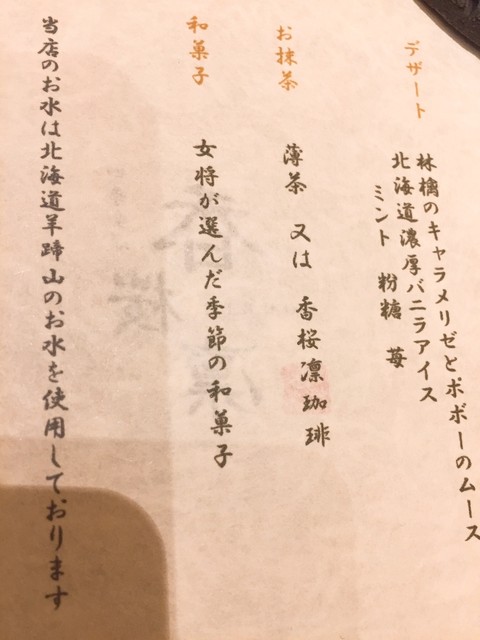 デザート
林檎のキャラメリゼとポポーのムース
北海道濃厚バニラアイス
ミント 粉糖 苺
お抹茶
薄茶 又は 香桜凛珈琲
和菓子
女将が選んだ季節の和菓子
当店のお水は北海道羊蹄山のお水を使用しております